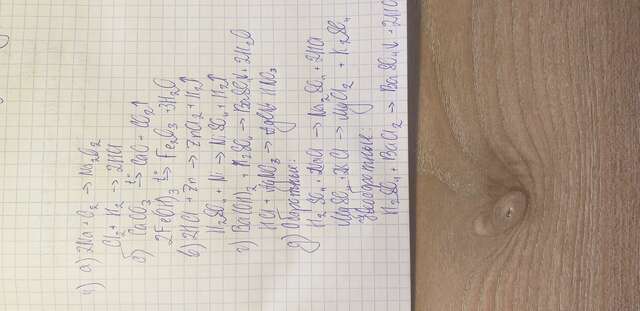 4) а) 2Na + O₂ → Na₂O₂
Cl₂ + H₂ → 2HCl
б) CaCO₃ t°→ CaO + CO₂↑
2Fe(OH)₃ t°→ Fe₂O₃ + 3H₂O
в) 2HCl + Zn → ZnCl₂ + H₂↑
H₂SO₄ + Ni → NiSO₄ + H₂↑
г) Ba(OH)₂ + H₂SO₄ → BaSO₄↓ + 2H₂O
HCl + AgNO₃ → AgCl↓ + HNO₃
д) Обратимые:
H₂SO₄ + 2NaCl → Na₂SO₄ + 2HCl
MgSO₄ + 2KCl → MgCl₂ + K₂SO₄
Необратимые:
H₂SO₄ + BaCl₂ → BaSO₄↓ + 2HCl